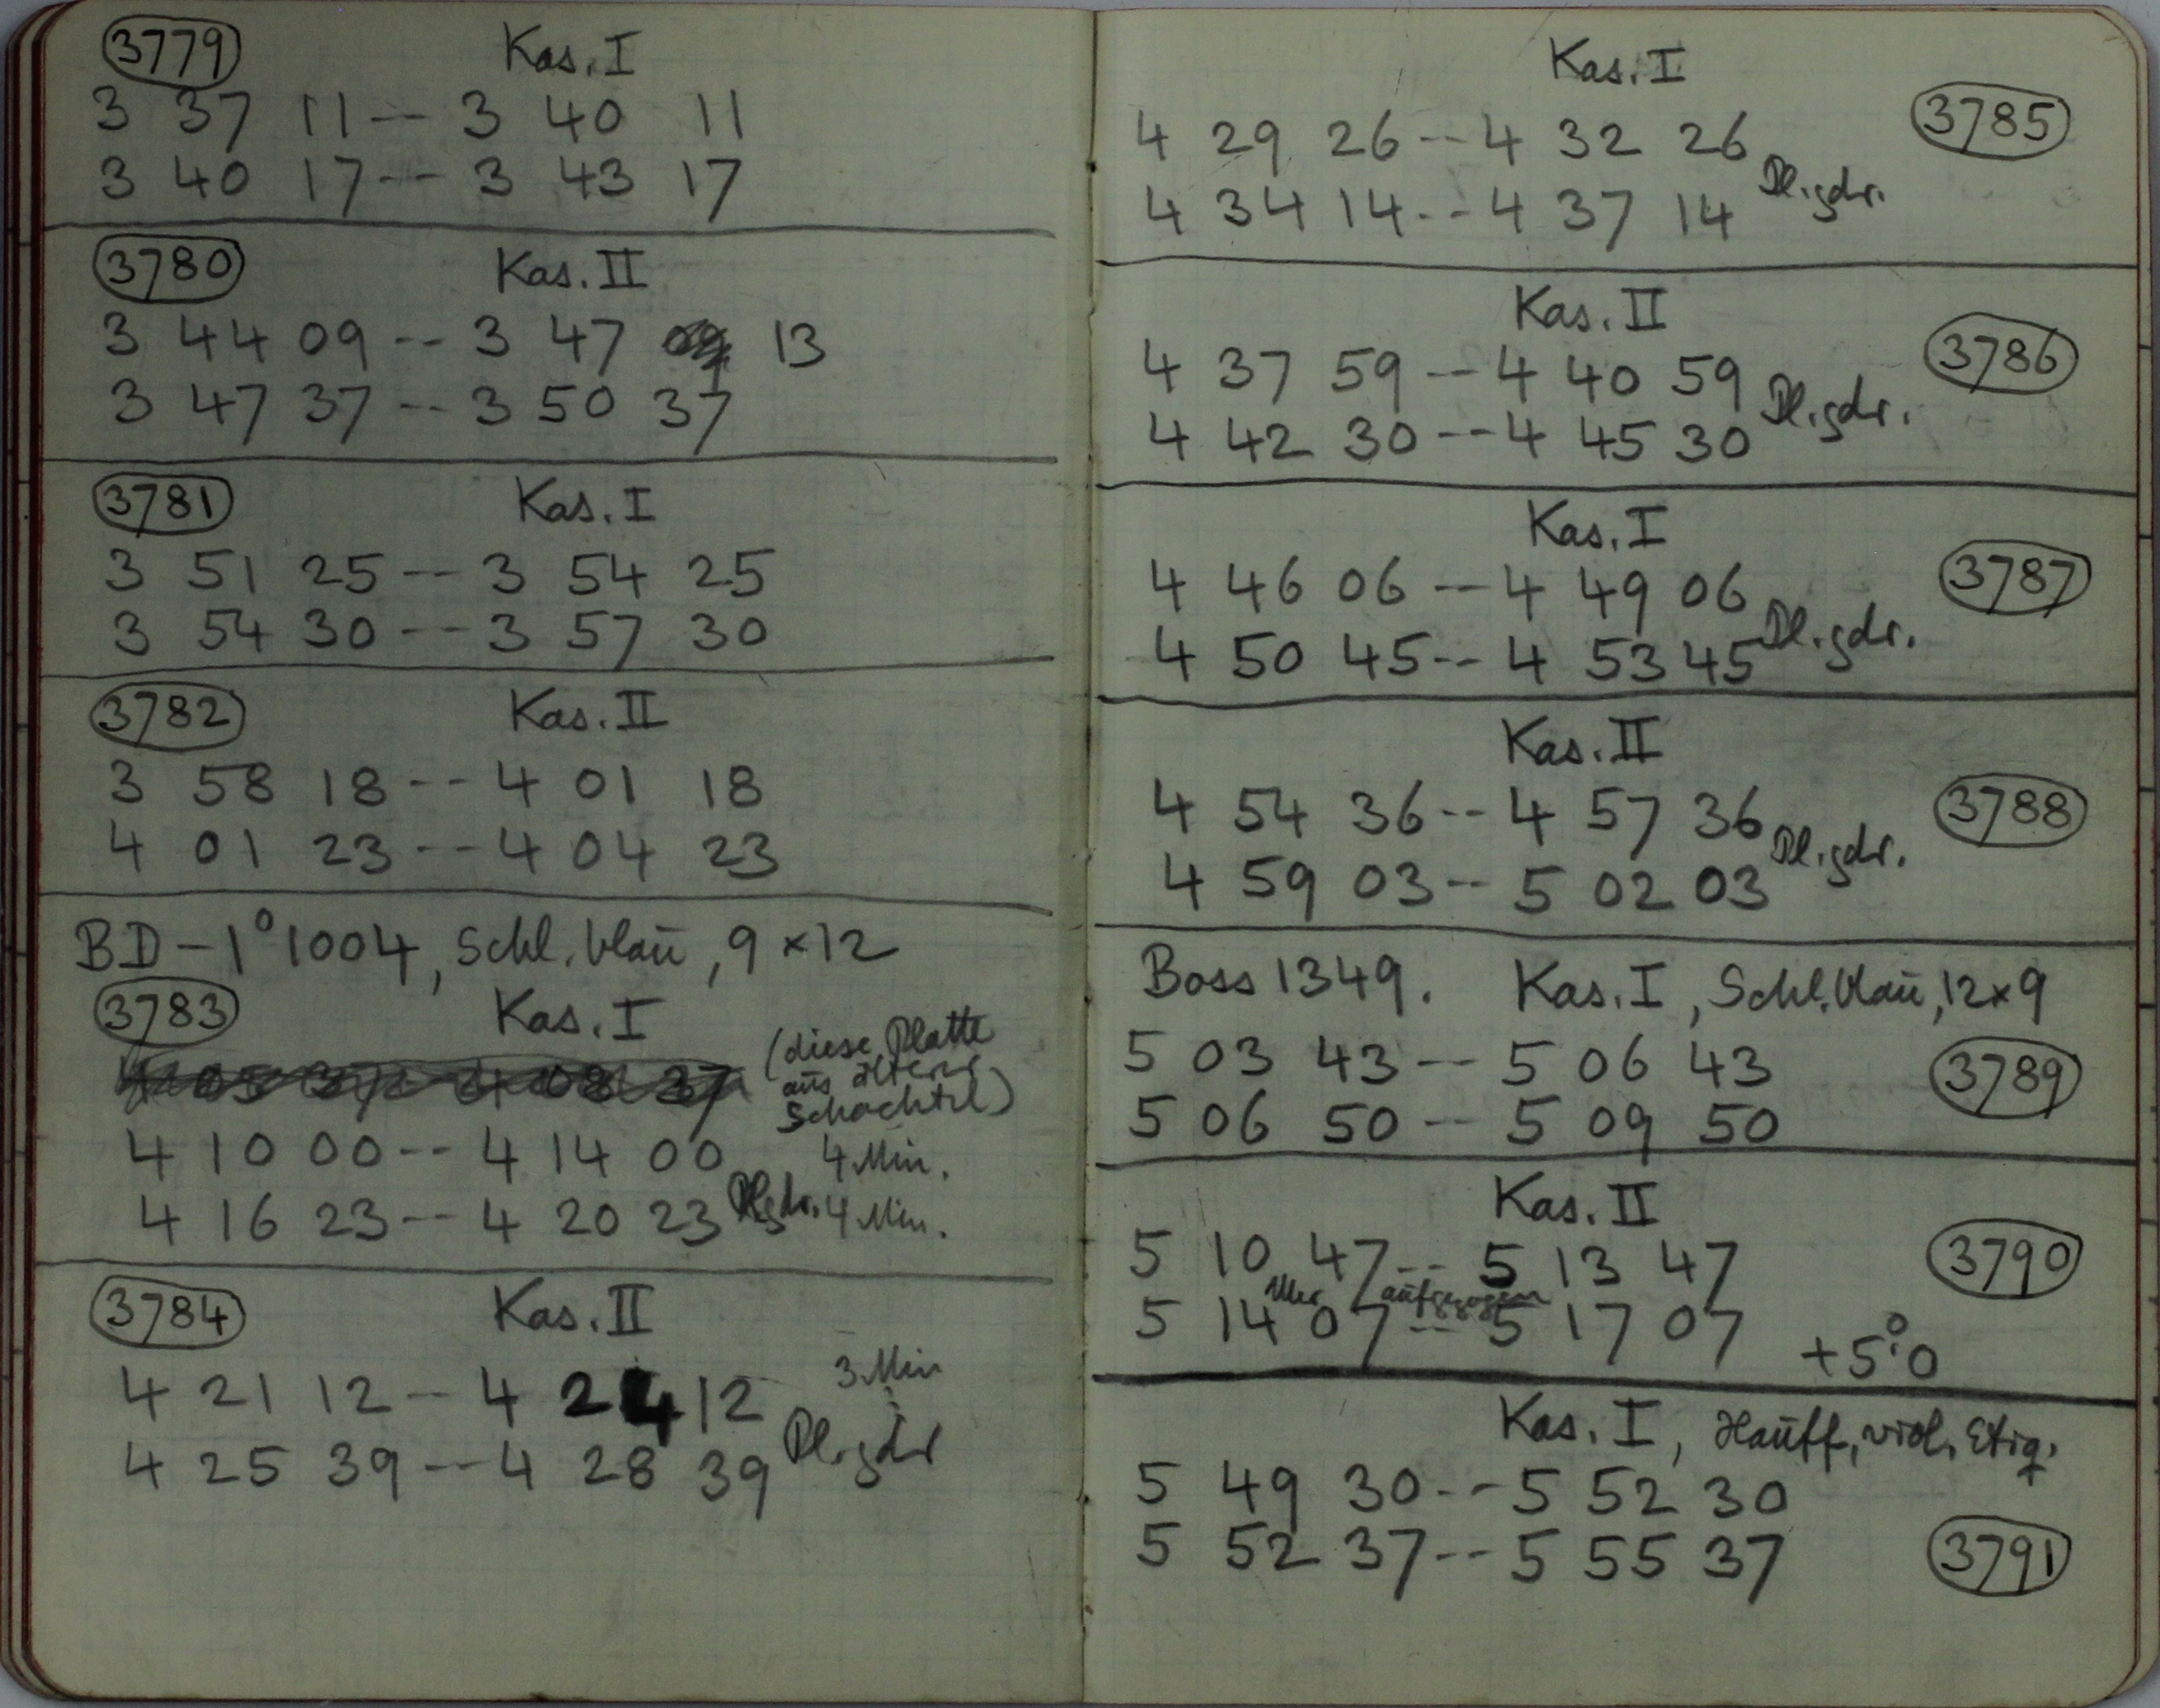 3779 Kas. I
3 37 11 -- 3 40 11
3 40 17 -- 3 43 17
3780 Kas. II
3 44 09 -- 3 47 13
3 47 37 -- 3 50 37
3781 Kas. I
3 51 25 -- 3 54 25
3 54 30 -- 3 57 30
3782 Kas. II
3 58 18 -- 4 01 18
4 01 23 -- 4 04 23
BD -1° 1004, Schl. blau, 9 × 12
3783 Kas. I
(diese Platte
aus älterer
Schachtel)
4 10 00 -- 4 14 00 4 Min.
4 16 23 -- 4 20 23 Pl. gdr. 4 Min.
3784 Kas. II
4 21 12 -- 4 24 12 3 Min
4 25 39 -- 4 28 39 Pl. gdr
Kas. I
4 29 26 -- 4 32 26 3785
4 34 14 -- 4 37 14 Pl. gdr.
Kas. II
4 37 59 -- 4 40 59 3786
4 42 30 -- 4 45 30 Pl. gdr.
Kas. I
4 46 06 -- 4 49 06 3787
4 50 45 -- 4 53 45 Pl. gdr.
Kas. II
4 54 36 -- 4 57 36 3788
4 59 03 -- 5 02 03 Pl. gdr.
Boss 1349. Kas. I, Schl. blau, 12×9
5 03 43 -- 5 06 43 3789
5 06 50 -- 5 09 50
Kas. II
5 10 47 -- 5 13 47 3790
Uhr aufgezogen
5 14 07 -- 5 17 07 +5°.0
Kas. I, Hauff, viol. Etiq.
5 49 30 -- 5 52 30
5 52 37 -- 5 55 37 3791